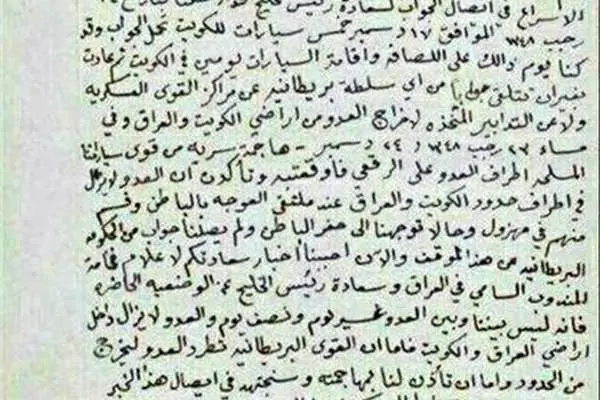 الاسراع في ايصال الجواب لسعادة رئيس الخليج
رجب ١٣٤٨ الموافق ١٧ دسمبر خمس سيارات للكويت تحمل الجواب وقد
كنا يوم ذالك على اللصافه واقامة السيارات يومين في الكويت ثم عادت
بغيران تتلقى جوابا من اي سلطة بريطانيه عن مراكز القوى العسكريه
ولا عن التدابير المتخذه لاخراج العدو من اراضي الكويت والعراق وفي
مساء ٢٣ رجب ١٣٤٨ و ٢٤ دسمبر - هاجمة سريه من قوى سياراتنا
المسلحه اطراف العدو على الرقعي فأوقعتبه وتأكدن ان العدو لايزال
في اطراف حدود الكويت والعراق عند ملتقى العوجه بالباطن وقسم
منهم في مهزول وحالا توجهنا الى حفر الباطن ولم يصلنا جواب من الحكومه
البريطانيه عن هذا الموقف والان احببنا اخبار سعادتكم لاعلام فخامة
المندوب السامي في العراق و سعادة رئيس الخليج عن الوضعيه الحاضره
فانه ليس بيننا وبين العدو غير يوم ونصف يوم والعدو لا يزال داخل
اراضي العراق والكويت فاما ان القوى البريطانيه تطرد العدو ليخرج
من الحدود واما ان تأذن لنا بمهاجمته وسنجتهد في ايصال هذا الخبر